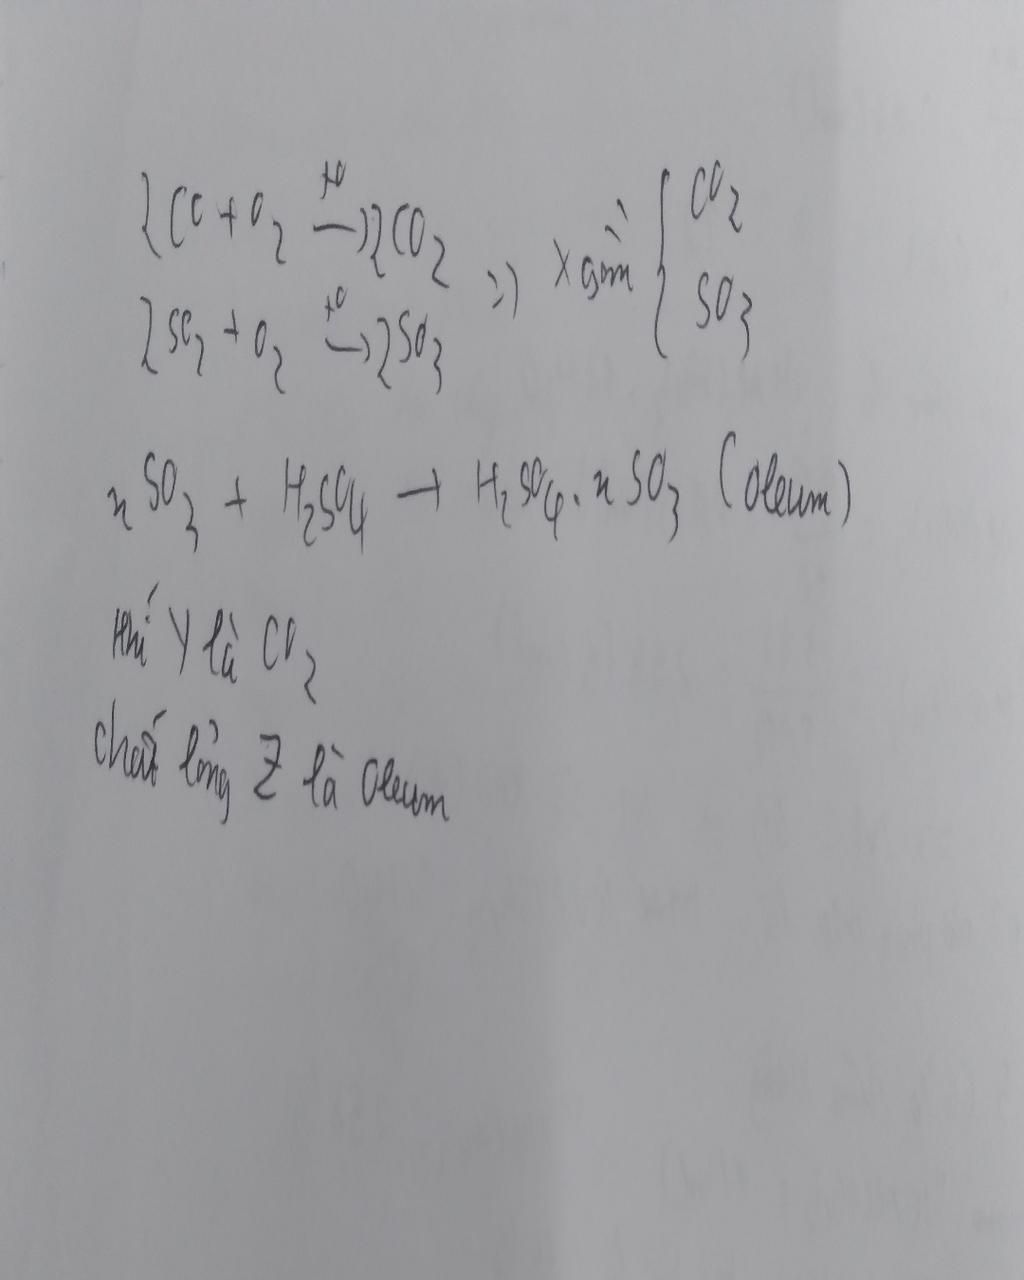 2CO + O2 t° → 2CO2 => X gồm { CO2
2SO2 + O2 t° → 2SO3 SO3
n SO3 + H2SO4 → H2SO4.nSO3 (Oleum)
Khí Y là CO2
chất lỏng Z là Oleum